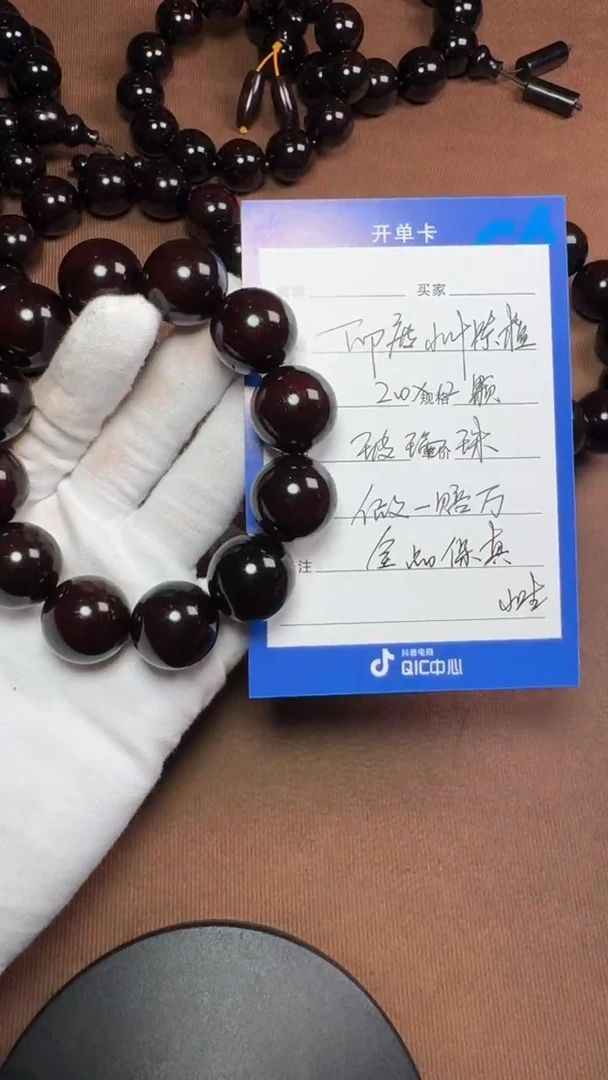 开单卡
买家
印度小叶紫檀
2.0 规格 颗
玻璃 单价 珠
假一赔万
注 金品保真
小叶
抖音电商
QIC中心